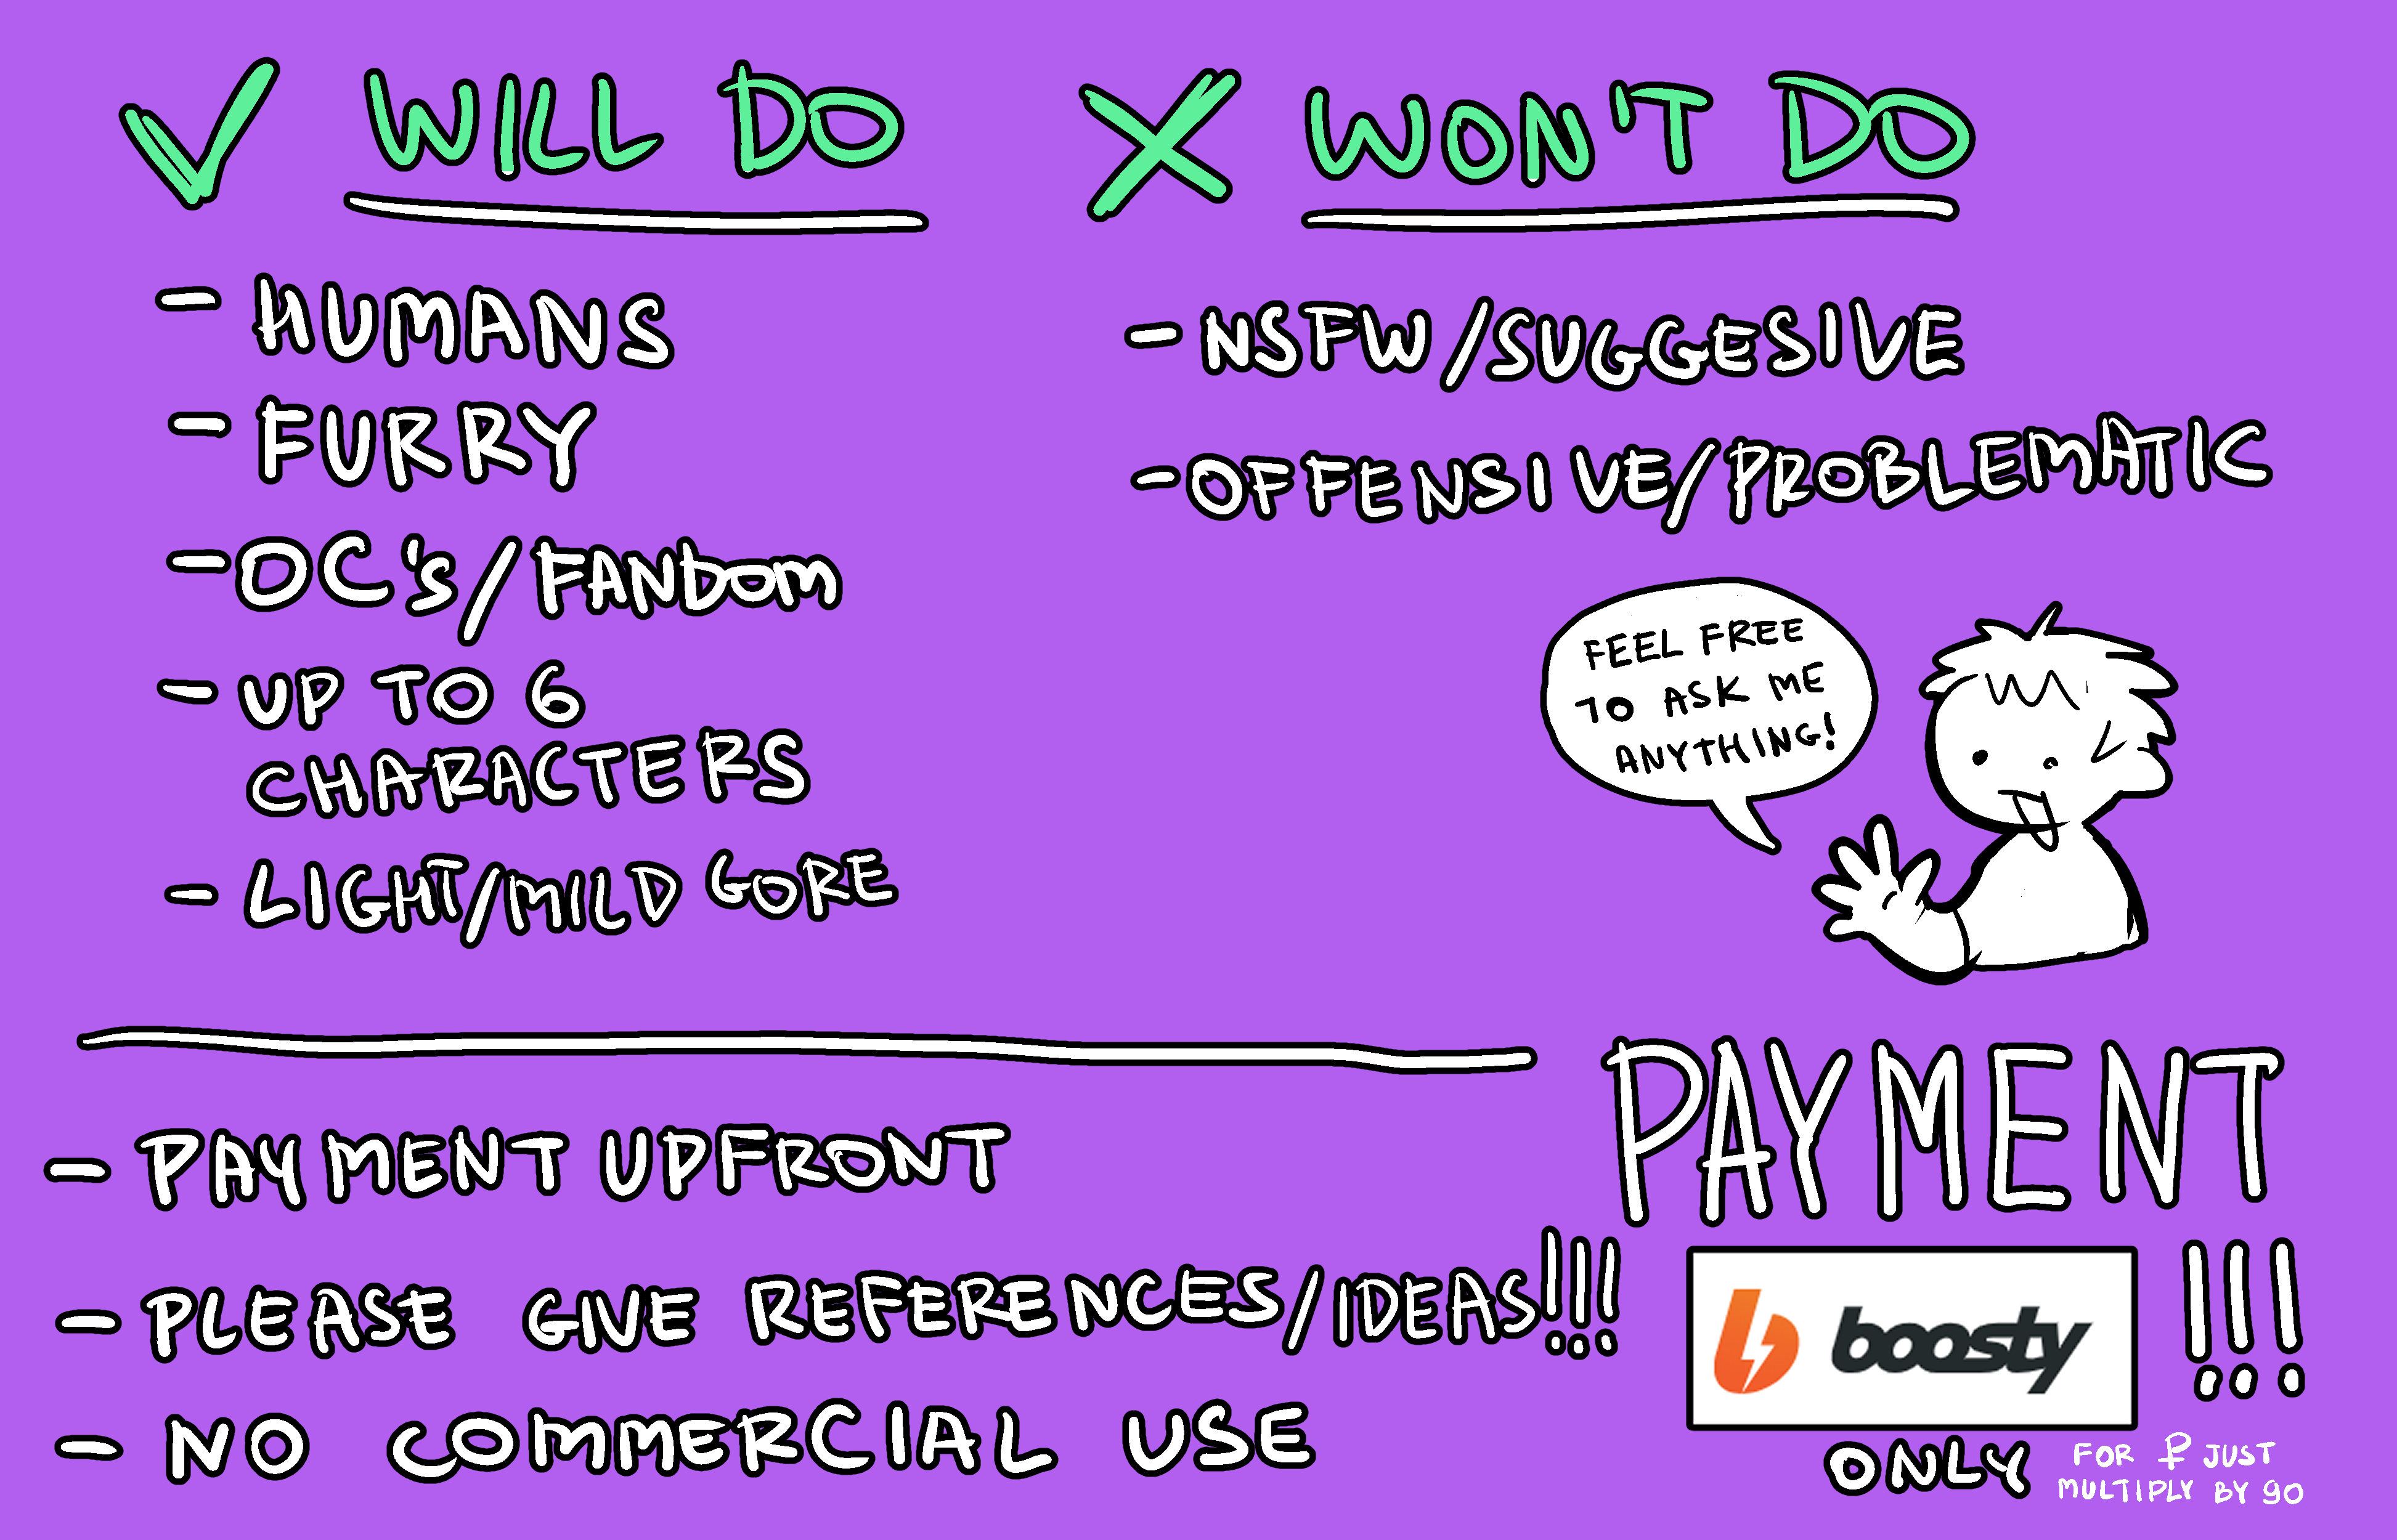 WILL DO
- HUMANS
- FURRY
- OC's/FANDOM
- UP TO 6
CHARACTERS
- LIGHT/MILD GORE
WON'T DO
- NSFW/SUGGESIVE
- OFFENSIVE/PROBLEMATIC
FEEL FREE
TO ASK ME
ANYTHING!
- PAYMENT UPFRONT
- PLEASE GIVE REFERENCES/IDEAS!!!
- NO COMMERCIAL USE
PAYMENT
boosty !!!
ONLY
FOR ₽ JUST
MULTIPLY BY 90